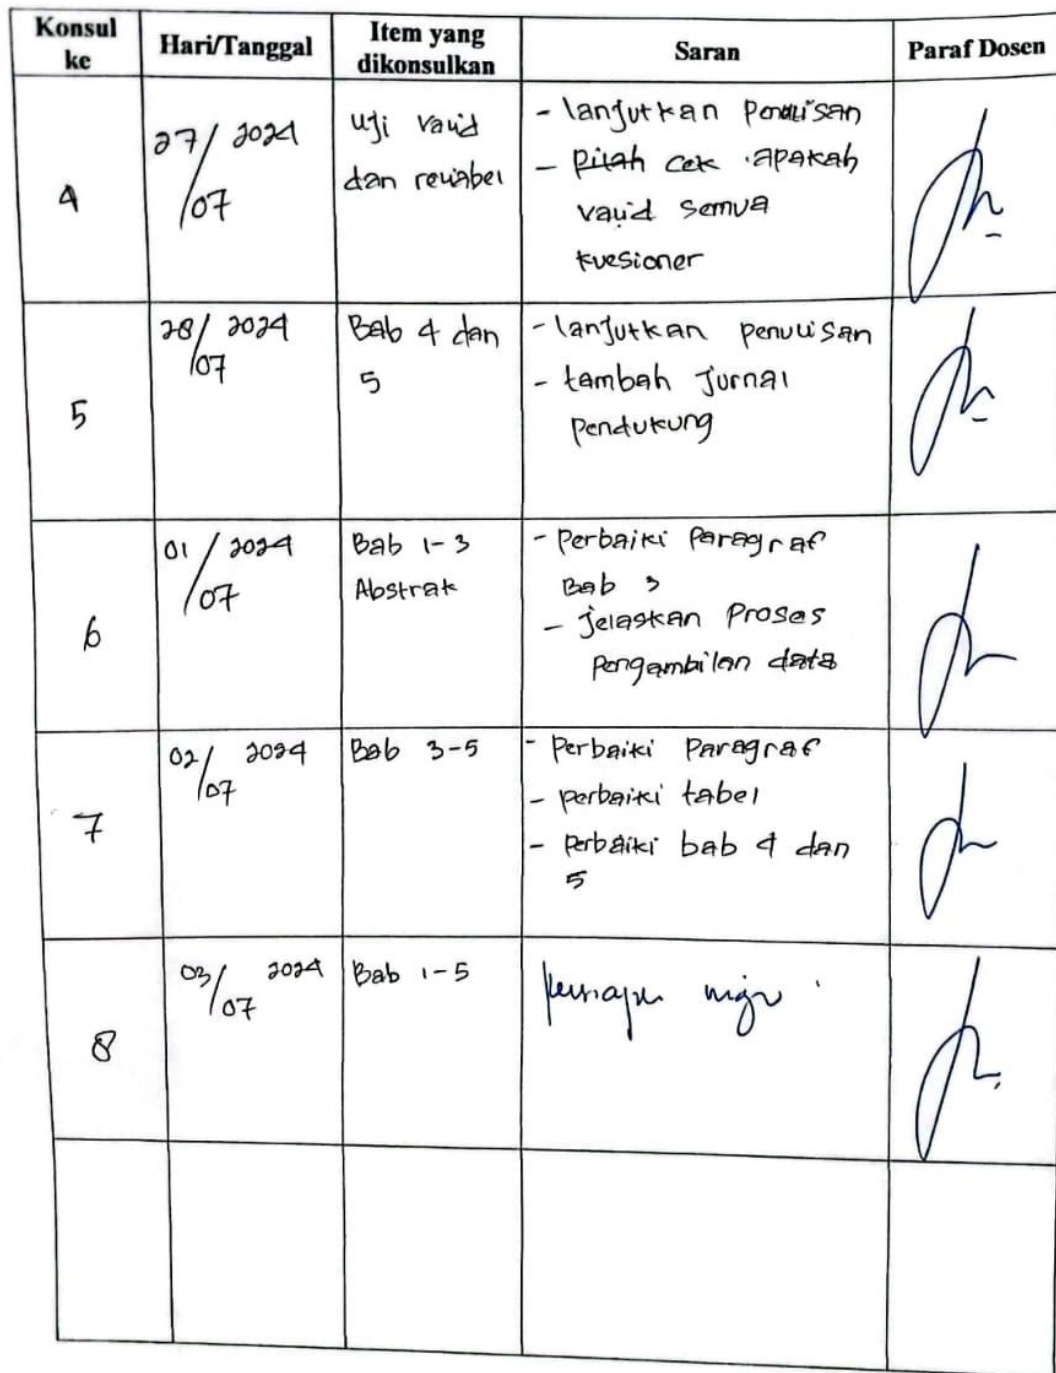 Konsul ke
Hari/Tanggal
Item yang dikonsulkan
Saran
Paraf Dosen
4
27/07 2024
Uji valid
dan reliabel
- lanjutkan penulisan
- pilah cek apakah
valid semua
kuesioner
5
28/07 2024
Bab 4 dan
5
- lanjutkan penulisan
- tambah Jurnal
Pendukung
6
01/07 2024
Bab 1-3
Abstrak
- Perbaiki Paragraf
Bab 3
- Jelaskan Proses
Pengambilan data
7
02/07 2024
Bab 3-5
- Perbaiki Paragraf
- perbaiki tabel
- Perbaiki bab 4 dan
5
8
03/07 2024
Bab 1-5